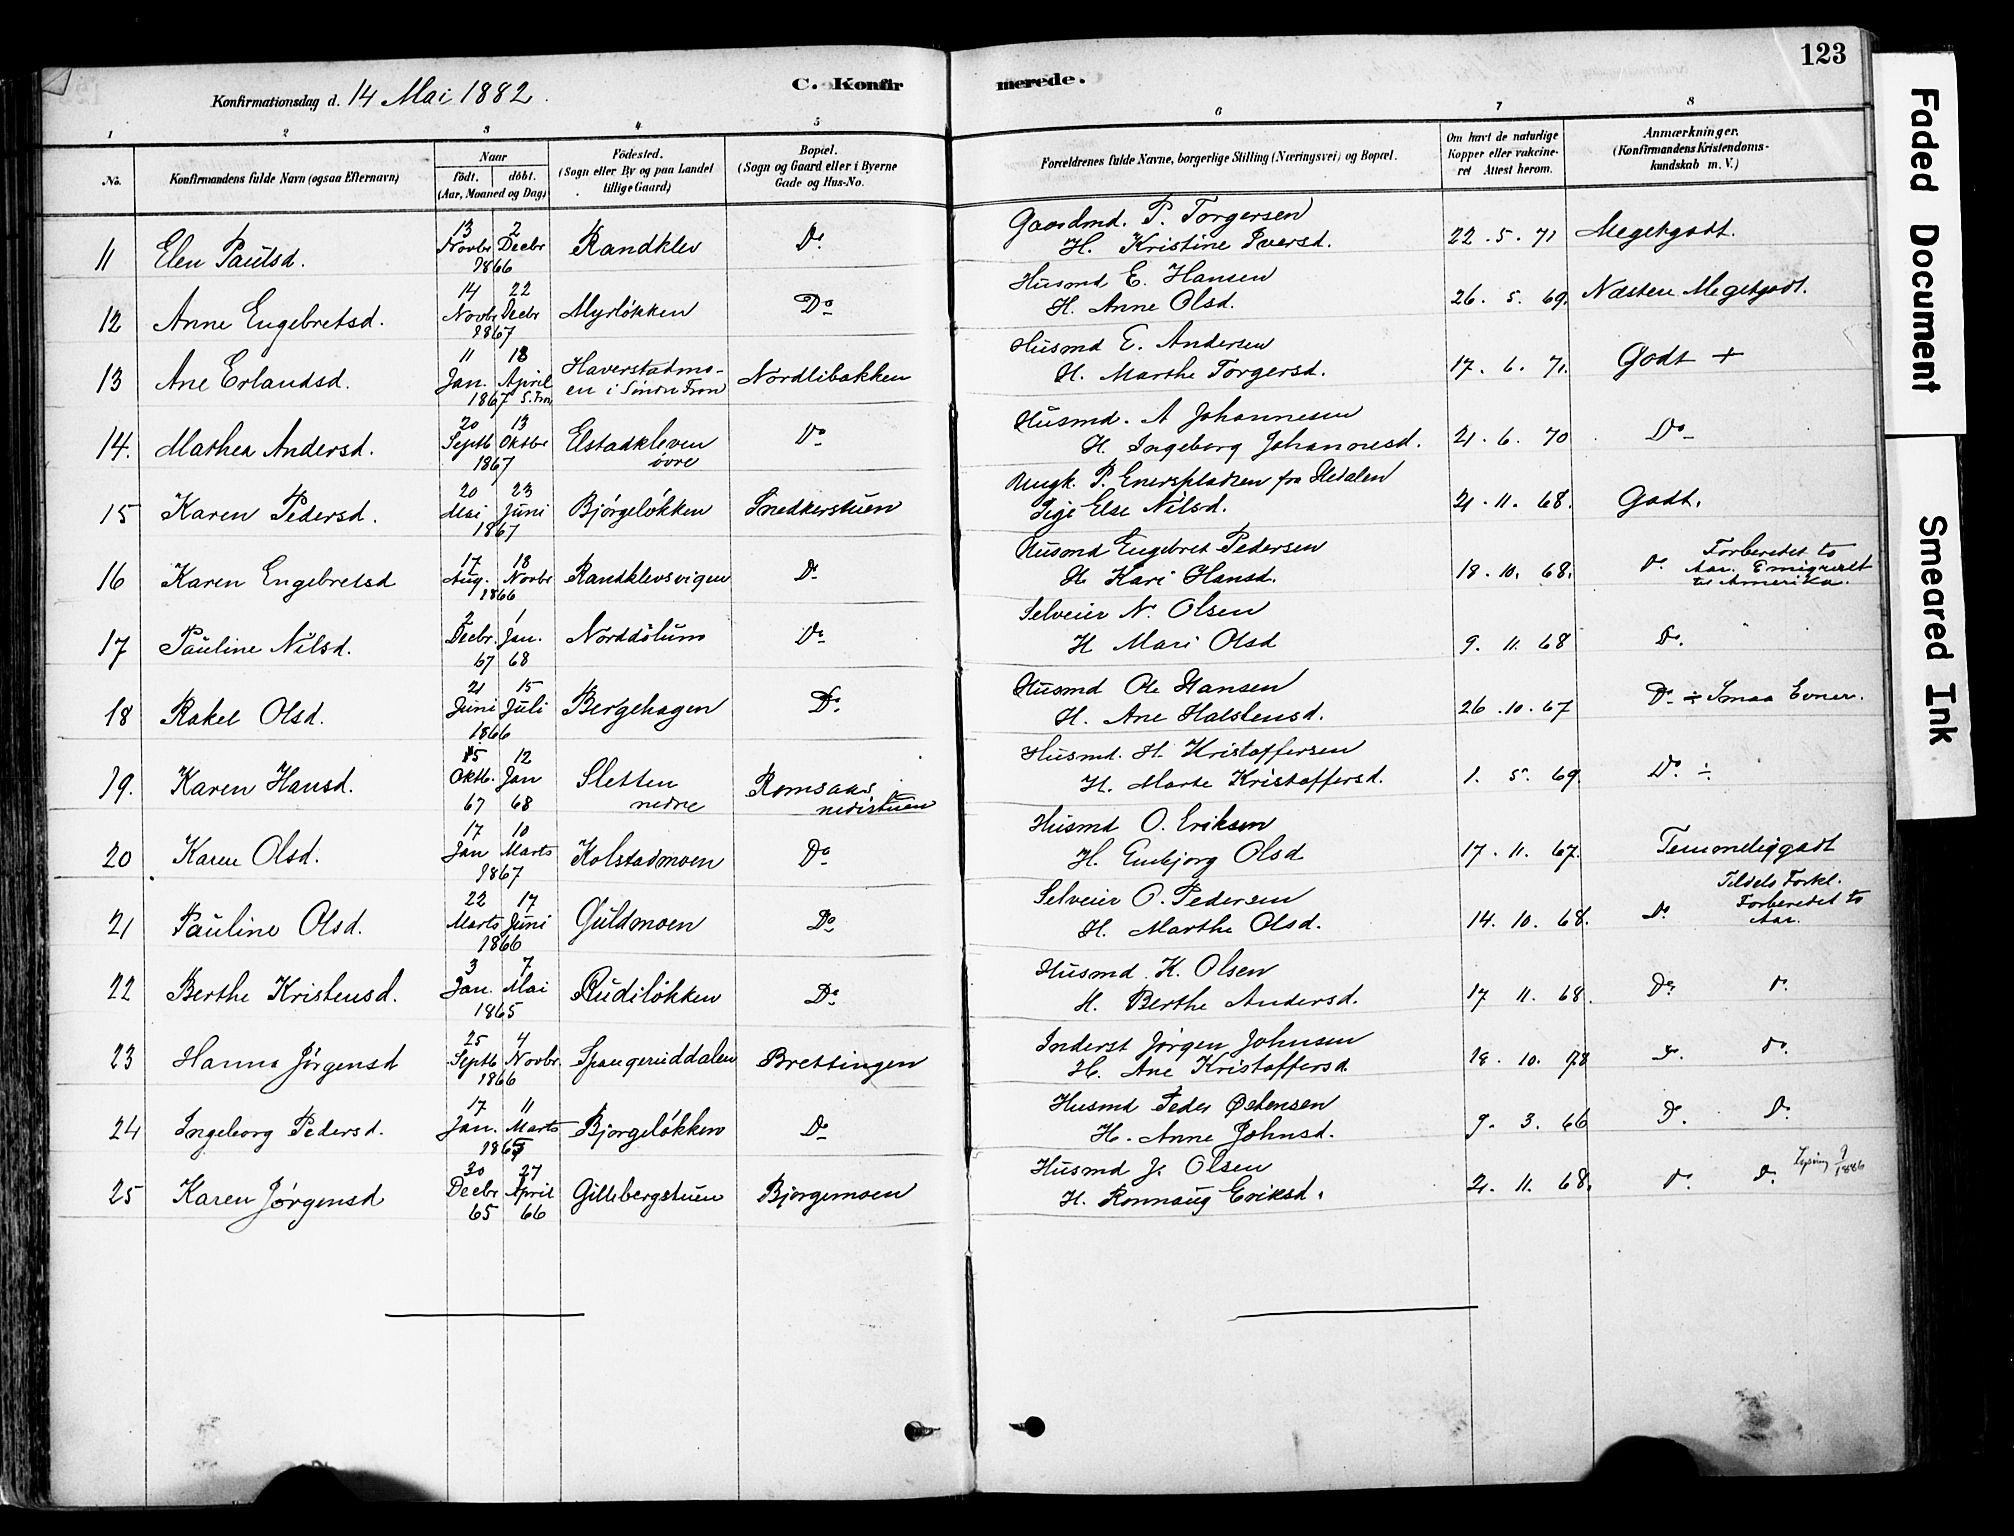 123
Konfirmationsdag d. 14 Mai 1882.
C. Konfirmerede.
1 2 3 4 5 6 7 8
No.
Konfirmandens fulde Navn (ogsaa Efternavn)
Naar
födt. döbt.
(Aar, Maaned og Dag)
Födested.
(Sogn eller By og paa Landet
tillige Gaard)
Bopæl.
(Sogn og Gaard eller i Byerne
Gade og Hus-No.
Forældrenes fulde Navne, borgerlige Stilling (Næringsvei) og Bopæl.
Om havt de naturlige
Kopper eller vakcine-
ret Attest herom.
Anmærkninger.
(Konfirmandens Kristendoms-
kundskab m. V.)
11 Elen Paulsd. 13 Novbr 2 Decbr 1866 Randklev Do Gaardmd. P. Torgersen
H. Kristine Iversd. 22. 5. 71 Megetgodt.
12 Anne Engebretsd. 14 Novbr 22 Decbr 1867 Myrløkken Do Husmd E. Hansen
H. Anne Olsd. 26. 5. 69. Næsten Megetgodt.
13 Ane Erlandsd. 11 Jan. 18 April 1867 S. Fron Haverstadmo-
en i Søndr Fron Nordlibakken Husmd E. Andersen
H. Marthe Torgersd. 17. 6. 71. Godt +
14. Mathea Andersd. 20 Septb 13 Oktbr 1867 Elstadkleven
øvre Do Husmd. A Johannesen
H. Ingeborg Johannesd. 21. 6. 70 Do
15 Karen Pedersd. 20 Mai 23 Juni 1867 Bjørgeløkken Snedkerstuen Ungk. P. Enerspladsen fra Hedalen
Pige Else Nilsd. 21. 11. 68. Godt.
16 Karen Engebretsd 17 Aug. 18 Novbr 1866 Randklevsvigen Do Husmd Engebret Pedersen
H. Kari Hansd. 18. 10. 68. Do Forberedet to
Aar. Emigreret
til Amerika.
17 Pauline Nilsd. 2 Decbr. 67 1 Jan. 68 Norddølum Do Selveier N. Olsen
H Mari Olsd 9. 11. 68 Do.
18 Rakel Olsd. 21 Juni 15 Juli 1866 Bergehagen Do Husmd Ole Hansen
H. Ane Halstensd. 26. 10. 67 Do ÷ Smaa Evner.
19. Karen Hansd. 15 Oktb. 67 12 Jan 68 Sletten
nedre Romsaas
nedistuen Husmd. H. Kristoffersen
H. Marte Kristoffersd. 1. 5. 69. Do ÷
20 Karen Olsd. 17 Jan 10 Marts 1867 Kolstadmoen Do Husmd O. Eriksen
H. Embjørg Olsd 17. 11. 67. Temmeliggodt
21 Pauline Olsd. 22 Marts 17 Juni 1866 Guldmoen Do Selveier O. Pedersen
H. Marthe Olsd. 14. 10. 68. Do Tildels Forkl.
Forberedet to
Aar.
22 Berthe Kristensd. 3 Jan. 7 Mai 1865 Rudiløkken Do Husmd K. Olsen
H. Berthe Andersd. 17 11. 68. Do Do
23 Hanna Jørgensd 25 Septb 4 Novbr. 1866 Spangruddalen Brettingen Inderst Jørgen Johnsen
H. Ane Kristoffersd. 18. 10. 78 Do Do
24 Ingeborg Pedersd. 17 Jan. 11 Marts 1865 Bjørgeløkken Do Husmd Peder Østensen
H. Anne Johnsd. 9. 3. 66 Do Do
25 Karen Jørgensd 30 Decbr 65 27 April 66 Gillebergstuen Bjørgemoen Husmd J. Olsen
H. Ronnaug Eriksd. 21. 11. 68. Do Do Lysning 1886
Faded Document
Smeared Ink